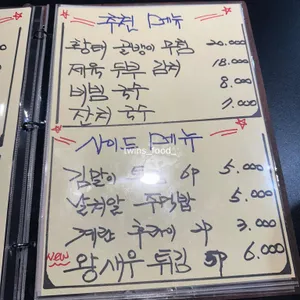 추천 메뉴
황태 골뱅이 무침 20.000
제육 두부 김치 18.000
비빔 국수 8.000
잔치 국수 7.000
twins_food_
사이드 메뉴
김말이 튀김 6P 5.000
날치알 주먹밥 5.000
계란 후라이 2P 3.000
NEW 왕새우 튀김 5P 6.000